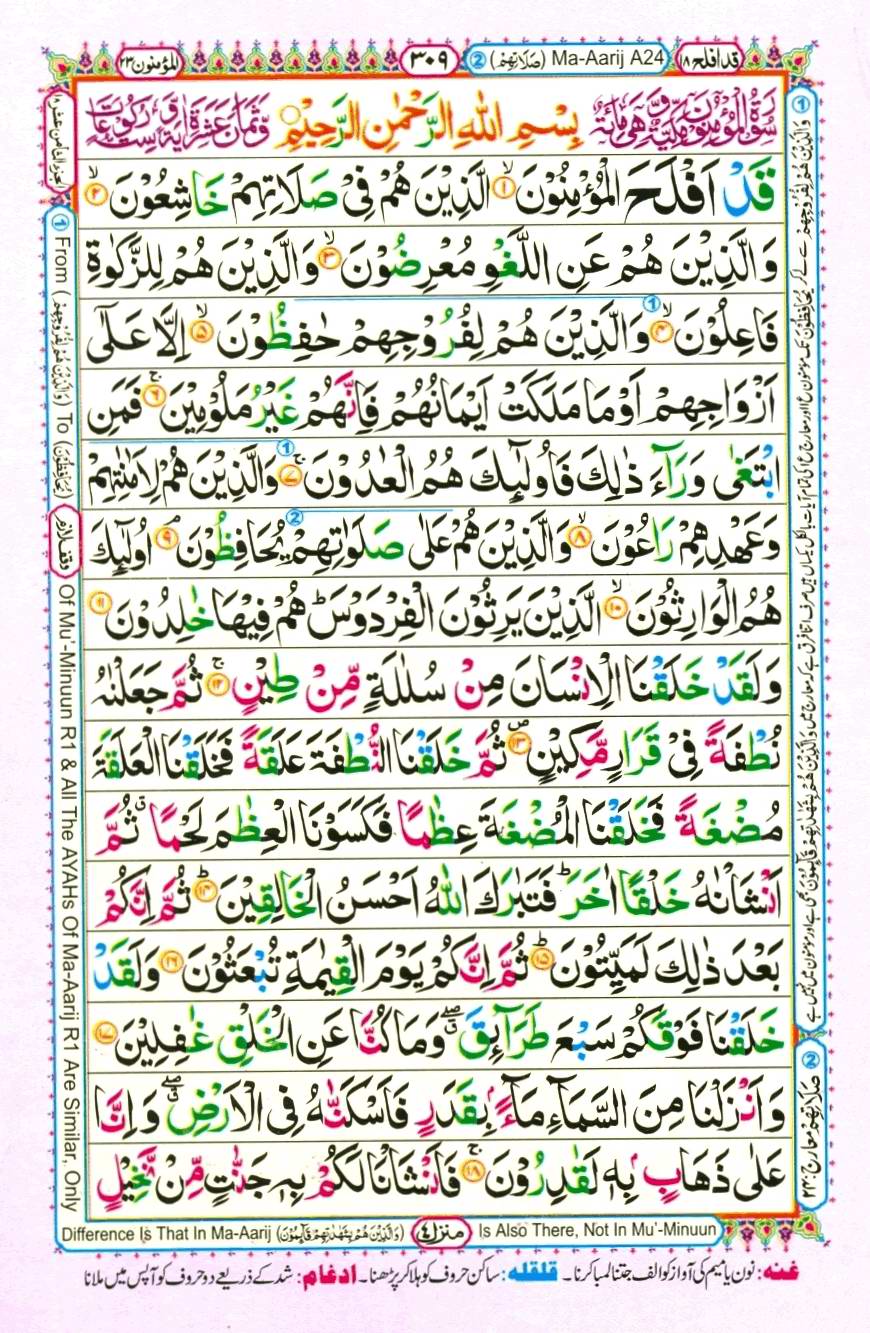 قد افلح ۱۸
② (صَلَاتِهِمْ) Ma-Aarij A24
۳۰۹
المؤمنون ۲۳
سُوْرَةُ الْمُؤْمِنُوْنَ مَكِّيَّةٌ وَّهِيَ مِائَةٌ
بِسْمِ اللّٰهِ الرَّحْمٰنِ الرَّحِيْمِ
وَّثَمَانَ عَشَرَةَ اٰيَةً وَّسِتُّ رُكُوْعَاتٍ
قَدْ اَفْلَحَ الْمُؤْمِنُوْنَ ۙ‏﴿۱﴾ الَّذِيْنَ هُمْ فِيْ صَلَاتِهِمْ خَاشِعُوْنَ ۙ‏﴿۲﴾
وَالَّذِيْنَ هُمْ عَنِ اللَّغْوِ مُعْرِضُوْنَ ۙ‏﴿۳﴾ وَالَّذِيْنَ هُمْ لِلزَّكٰوةِ
فَاعِلُوْنَ ۙ‏﴿۴﴾ وَالَّذِيْنَ هُمْ لِفُرُوْجِهِمْ حٰفِظُوْنَ ۙ‏﴿۵﴾ اِلَّا عَلٰٓى
اَزْوَاجِهِمْ اَوْ مَا مَلَكَتْ اَيْمَانُهُمْ فَاِنَّهُمْ غَيْرُ مَلُوْمِيْنَ ۚ‏﴿۶﴾ فَمَنِ
ابْتَغٰى وَرَآءَ ذٰلِكَ فَاُولٰٓئِكَ هُمُ الْعٰدُوْنَ ۚ‏﴿۷﴾ وَالَّذِيْنَ هُمْ لِاَمٰنٰتِهِمْ
وَعَهْدِهِمْ رَاعُوْنَ ۙ‏﴿۸﴾ وَالَّذِيْنَ هُمْ عَلٰى صَلَوٰتِهِمْ يُحَافِظُوْنَ ۘ‏﴿۹﴾ اُولٰٓئِكَ
هُمُ الْوَارِثُوْنَ ۙ‏﴿۱۰﴾ الَّذِيْنَ يَرِثُوْنَ الْفِرْدَوْسَ ؕ هُمْ فِيْهَا خٰلِدُوْنَ ﴿۱۱﴾
وَلَقَدْ خَلَقْنَا الْاِنْسَانَ مِنْ سُلٰلَةٍ مِّنْ طِيْنٍ ۚ‏﴿۱۲﴾ ثُمَّ جَعَلْنٰهُ
نُطْفَةً فِيْ قَرَارٍ مَّكِيْنٍ ۪‏﴿۱۳﴾ ثُمَّ خَلَقْنَا النُّطْفَةَ عَلَقَةً فَخَلَقْنَا الْعَلَقَةَ
مُضْغَةً فَخَلَقْنَا الْمُضْغَةَ عِظٰمًا فَكَسَوْنَا الْعِظٰمَ لَحْمًا ۗ ثُمَّ
اَنْشَاْنٰهُ خَلْقًا اٰخَرَ ؕ فَتَبٰرَكَ اللّٰهُ اَحْسَنُ الْخَالِقِيْنَ ؕ‏﴿۱۴﴾ ثُمَّ اِنَّكُمْ
بَعْدَ ذٰلِكَ لَمَيِّتُوْنَ ؕ‏﴿۱۵﴾ ثُمَّ اِنَّكُمْ يَوْمَ الْقِيٰمَةِ تُبْعَثُوْنَ ﴿۱۶﴾ وَلَقَدْ
خَلَقْنَا فَوْقَكُمْ سَبْعَ طَرَآئِقَ ۖ وَمَا كُنَّا عَنِ الْخَلْقِ غٰفِلِيْنَ ﴿۱۷﴾
وَاَنْزَلْنَا مِنَ السَّمَآءِ مَآءًۢ بِقَدَرٍ فَاَسْكَنّٰهُ فِى الْاَرْضِ ۖ وَاِنَّا
عَلٰى ذَهَابٍۭ بِهٖ لَقٰدِرُوْنَ ۚ‏﴿۱۸﴾ فَاَنْشَاْنَا لَكُمْ بِهٖ جَنّٰتٍ مِّنْ نَّخِيْلٍ
① وَالَّذِيْنَ هُمْ لِفُرُوْجِهِمْ سے لے کر يُحَافِظُوْنَ تک
② صَلَاتِهِمْ معارج: ۲۳
الجزء الثامن عشر ۱۸
① From (وَالَّذِيْنَ هُمْ لِفُرُوْجِهِمْ) To (يُحَافِظُوْنَ)
وقف لازم
Of Mu'-Minuun R1 & All The AYAHs Of Ma-Aarij R1 Are Similar, Only
Difference Is That In Ma-Aarij (وَالَّذِيْنَ هُمْ بِشَهٰدٰتِهِمْ قَآئِمُوْنَ)
منزل ۴
Is Also There, Not In Mu'-Minuun
غنه: نون یا میم کی آواز کو الف جتنا لمبا کرنا۔ قلقله: ساکن حروف کو ہلا کر پڑھنا۔ ادغام: شد کے ذریعے دو حروف کو آپس میں ملانا